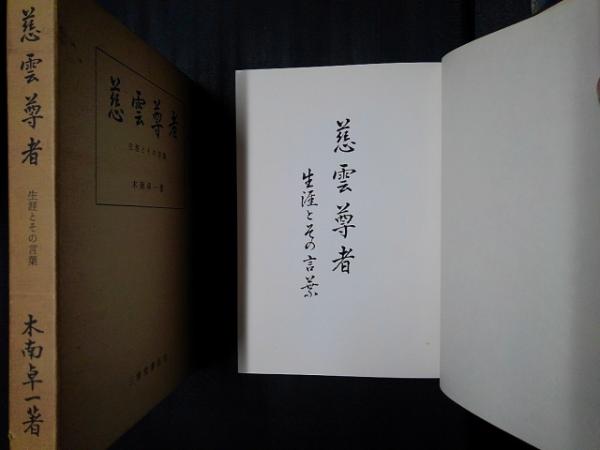 慈雲尊者
生涯とその言葉
木南卓一著
慈雲尊者
生涯とその言葉
木南卓一著
慈雲尊者
生涯とその言葉